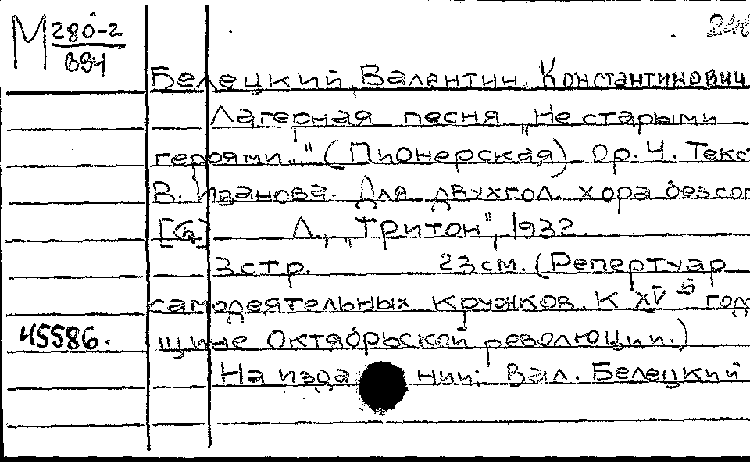 М 280-2
884
Белецкий, Валентин Константинович
Лагерная песня „Не старыми
героями..." (Пионерская). Ор. 4. Текс
В. Иванова. Для двухгол. хора без соп
Л., „Тритон", 1932.
3 стр. 23 см. (Репертуар
самодеятельных кружков. К XV й год
45586. щине Октябрьской революции.)
На изда нии: Вал. Белецкий